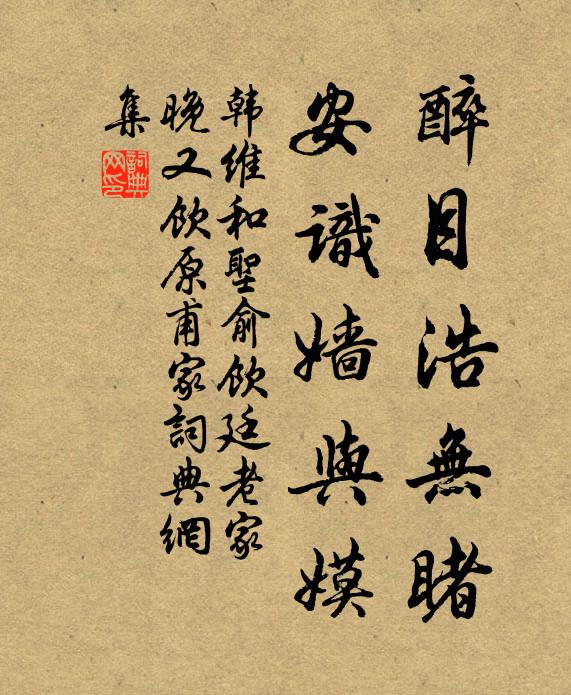 醉目浩無睹
安識嬙與嫫
韩維和聖俞飲廷老家
晚又飲原甫家詞典網
集
詞典網印